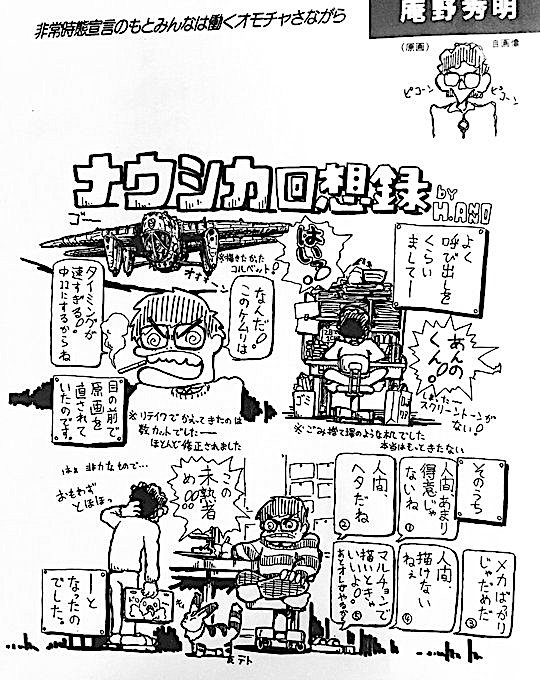 非常時態宣言のもとみんなは働くオモチャさながら
庵野秀明
(原画)
自画像
ピコーン
ピコーン
ナウシカ回想録
by
H.ANO
ゴー
※描きたかった
コルベット!
はいっ!
よく
呼び出しを
くらい
ましてー
なんだ!
このケムリは
タイミングが
速すぎる!
中ココにするからね
あんの
くん!!
しまったー
スクリーントーンが
ない!
ゴミ
目の前で
原画を
直されて
いたのです。
※リテイクでかえってきたのは
数カットでしたー
ほとんど修正されました
※ごみ捨て場のような机でした
本当はもっときたない
そのうち
人間、あまり
得意じゃ
ないね
①
人間、
ヘタだね
②
メカばかり
じゃだめだ
③
人間、
描けない
ねぇ
④
マルチョンで
描いときゃ
いいよ!!
あとオレがやるから
⑤
この
未熟者
め!!!
はぁ 非力なもので…
おもわず
とほほっ
ーと
なったの
でした。
テト